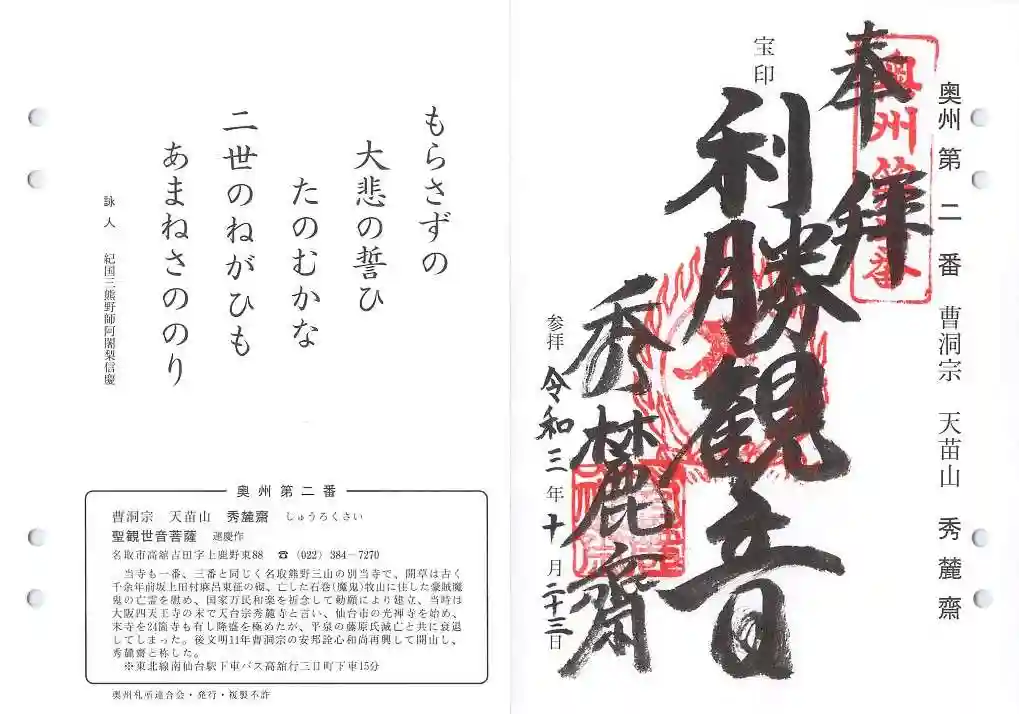 奥州第二番　曹洞宗　天苗山　秀麓齋
奥州第二番
奉拝
宝印
利勝観音
秀麓齋
参拝　令和三年十月二十三日
もらさずの
大悲の誓ひ
たのむかな
二世のねがひも
あまねさののり
詠人　紀国三熊野師阿闍梨信慶
奥州第二番
曹洞宗　天苗山　秀麓齋　しゅうろくさい
聖観世音菩薩　運慶作
名取市高舘吉田字上鹿野東88　☎（022）384－7270
当寺も一番、三番と同じく名取熊野三山の別当寺で、開草は古く
千余年前坂上田村麻呂東征の砌、亡した石巻(魔鬼)牧山に住した豪賊魔
鬼の亡霊を慰め、国家万民和楽を祈念して勅願により建立、当時は
大阪四天王寺の末で天台宗秀麓寺と言い、仙台市の光禅寺を始め、
末寺を24箇寺も有し隆盛を極めたが、平泉の藤原氏滅亡と共に衰退
してしまった。後文明11年曹洞宗の安邦詮心和尚再興して開山し、
秀麓齋と称した。
※東北線南仙台駅下車バス高舘行三日町下車15分
奥州札所連合会・発行・複製不許